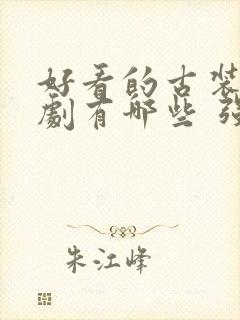 好看的古装
劇有哪些
朱江峰